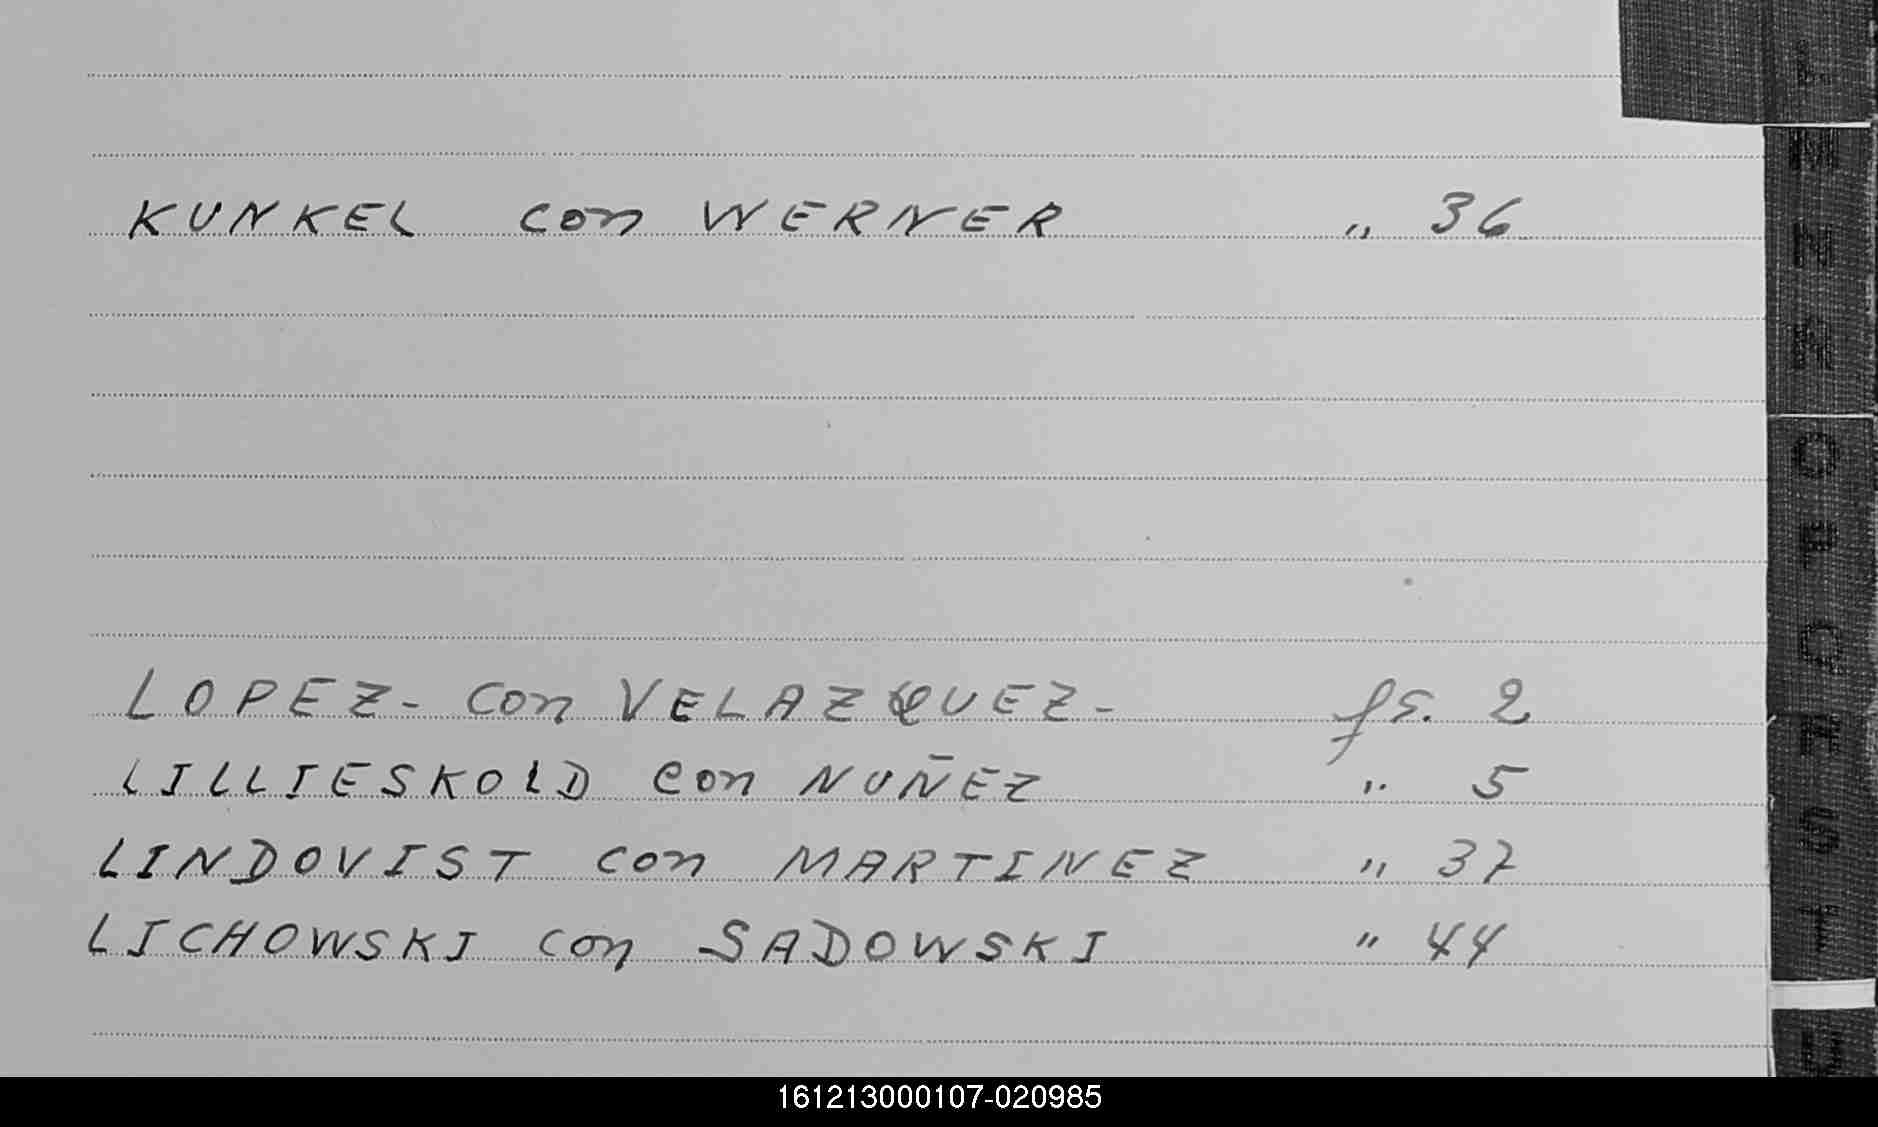 KUNKEL con WERNER " 36
LOPEZ- con VELAZQUEZ- fs. 2
LILLIESKOLD con NUÑEZ " 5
LINDOVIST con MARTINEZ " 37
LICHOWSKI con SADOWSKI " 44
L
M
N
Ñ
O
P
Q
R
S
T
U
161213000107-020985